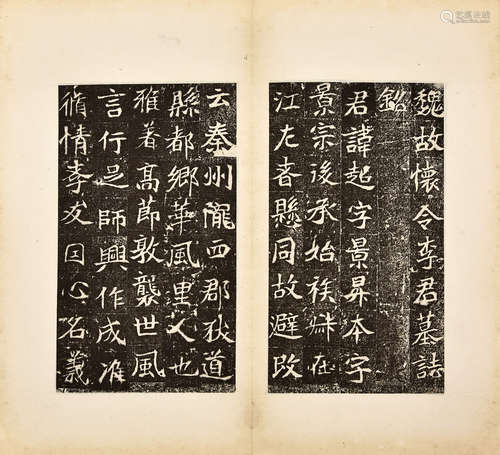 魏故懷令李君墓誌
銘
君諱起字景昇本字
景宗後承始族 在
江左者懸同故避改
云秦州隴西郡狄道
縣都鄉華風里人也
雅著高節敦襲世風
言行足師興作成准
脩情孝友因心名義